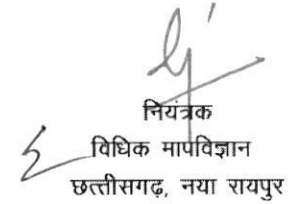 नियंत्रक
विधिक मापविज्ञान
छत्तीसगढ़, नया रायपुर